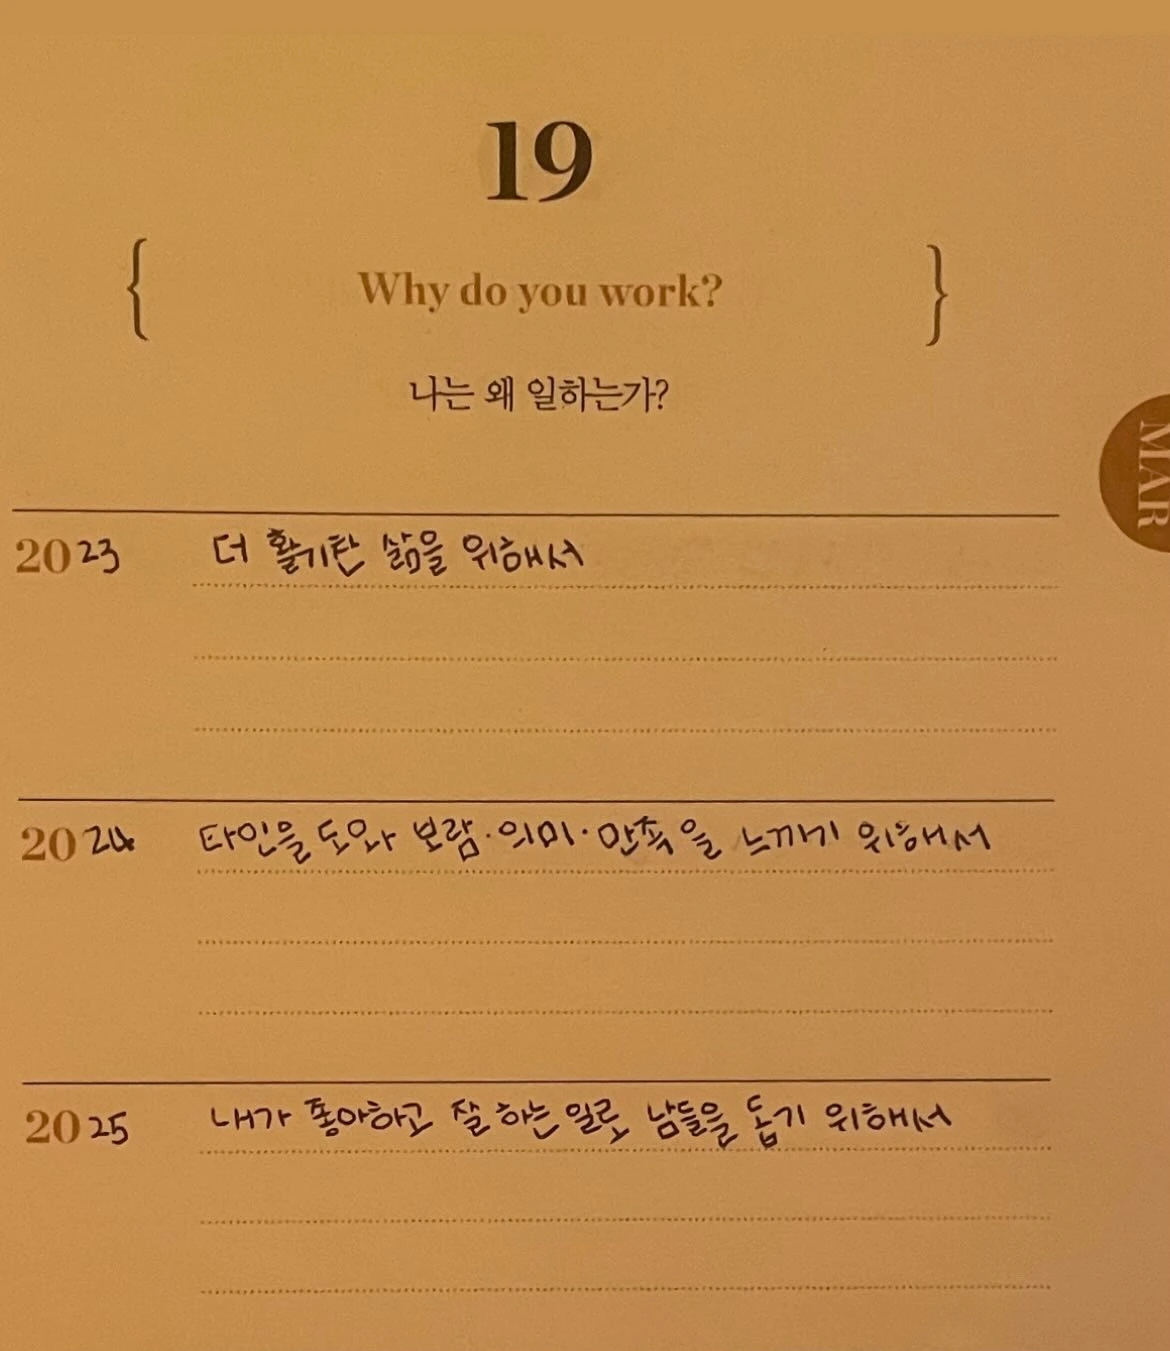 19
{ Why do you work? }
나는 왜 일하는가?
MAR
2023 더 활기찬 삶을 위해서
2024 타인을 도와 보람·의미·만족을 느끼기 위해서
2025 내가 좋아하고 잘 하는 일로 남들을 돕기 위해서